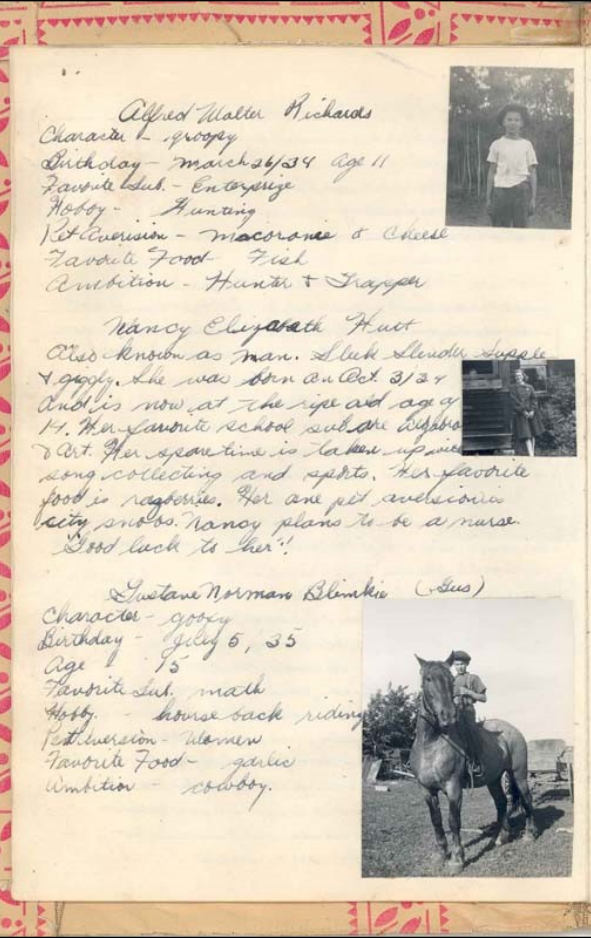 Alfred Walter Richards
Character - groopy
Birthday - March 26/34 Age 11
Favorite Sub. - Enterprize
Hobby - Hunting
Pet Averision - macoronie & cheese
Favorite Food - Fish
Ambition - Hunter & Trapper
Nancy Elizabeth Hutt
Also known as man. Sleek Slender Supple
& giggly. She was born on Oct. 3/34
and is now at the ripe old age of
14. Her favorite school sub. are
& Art. Her spare time is taken up
song collecting and sports. Her favorite
food is razberries. Her one pet aversion is
city snobs. Nancy plans to be a nurse.
"Good luck to her"!
Gustave Norman Blimkie (Gus)
Character - goofy
Birthday - July 5, 35
Age 15
Favorite Sub. math
Hobby. - hourse back riding
Pet Aversion - Women
Favorite Food - garlic
Ambition - cowboy.